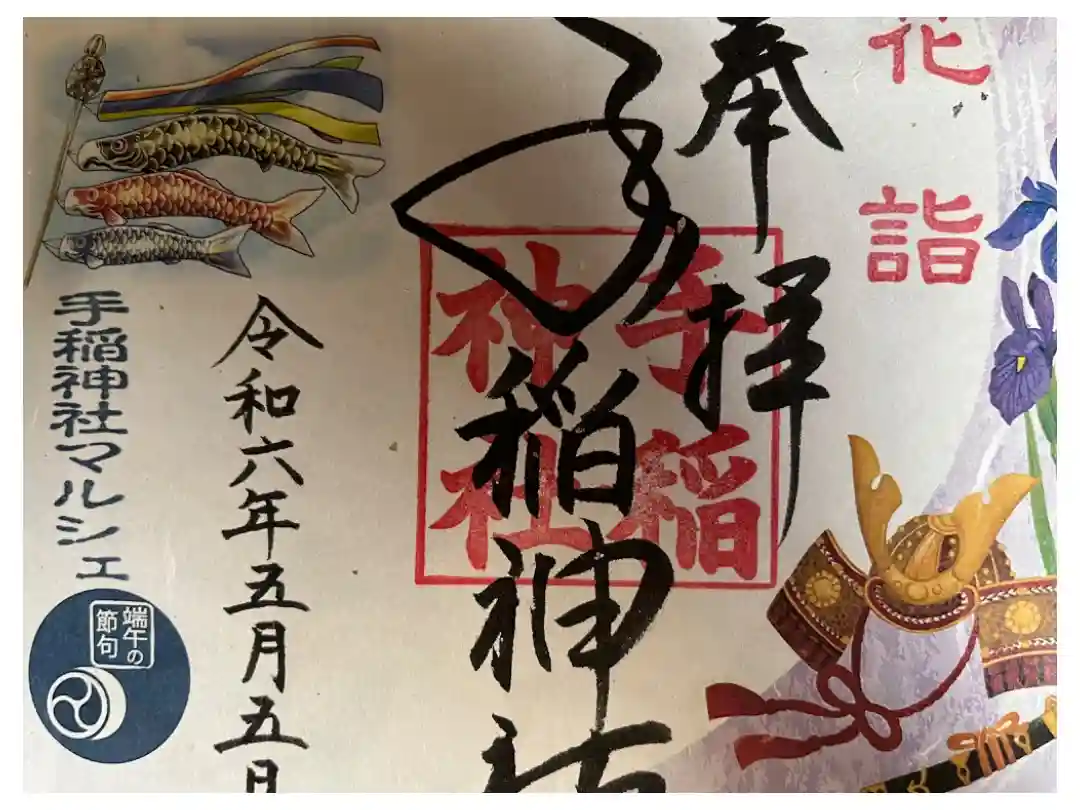 花詣
奉拝
手稲神社
手稲
神社
令和六年五月五日
手稲神社マルシェ
端午の
節句